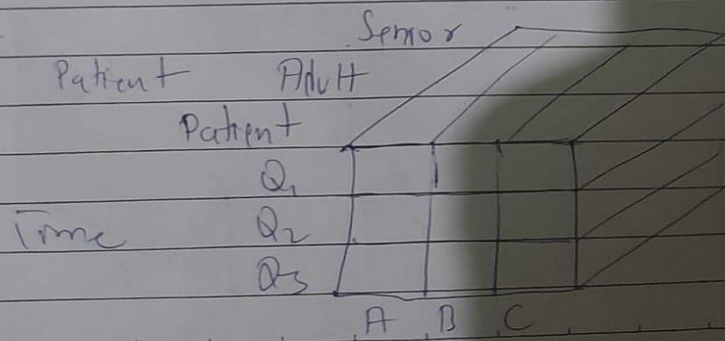 Senior
Patient Adult
Patient
Q1
Time Q2
Q3
A B C